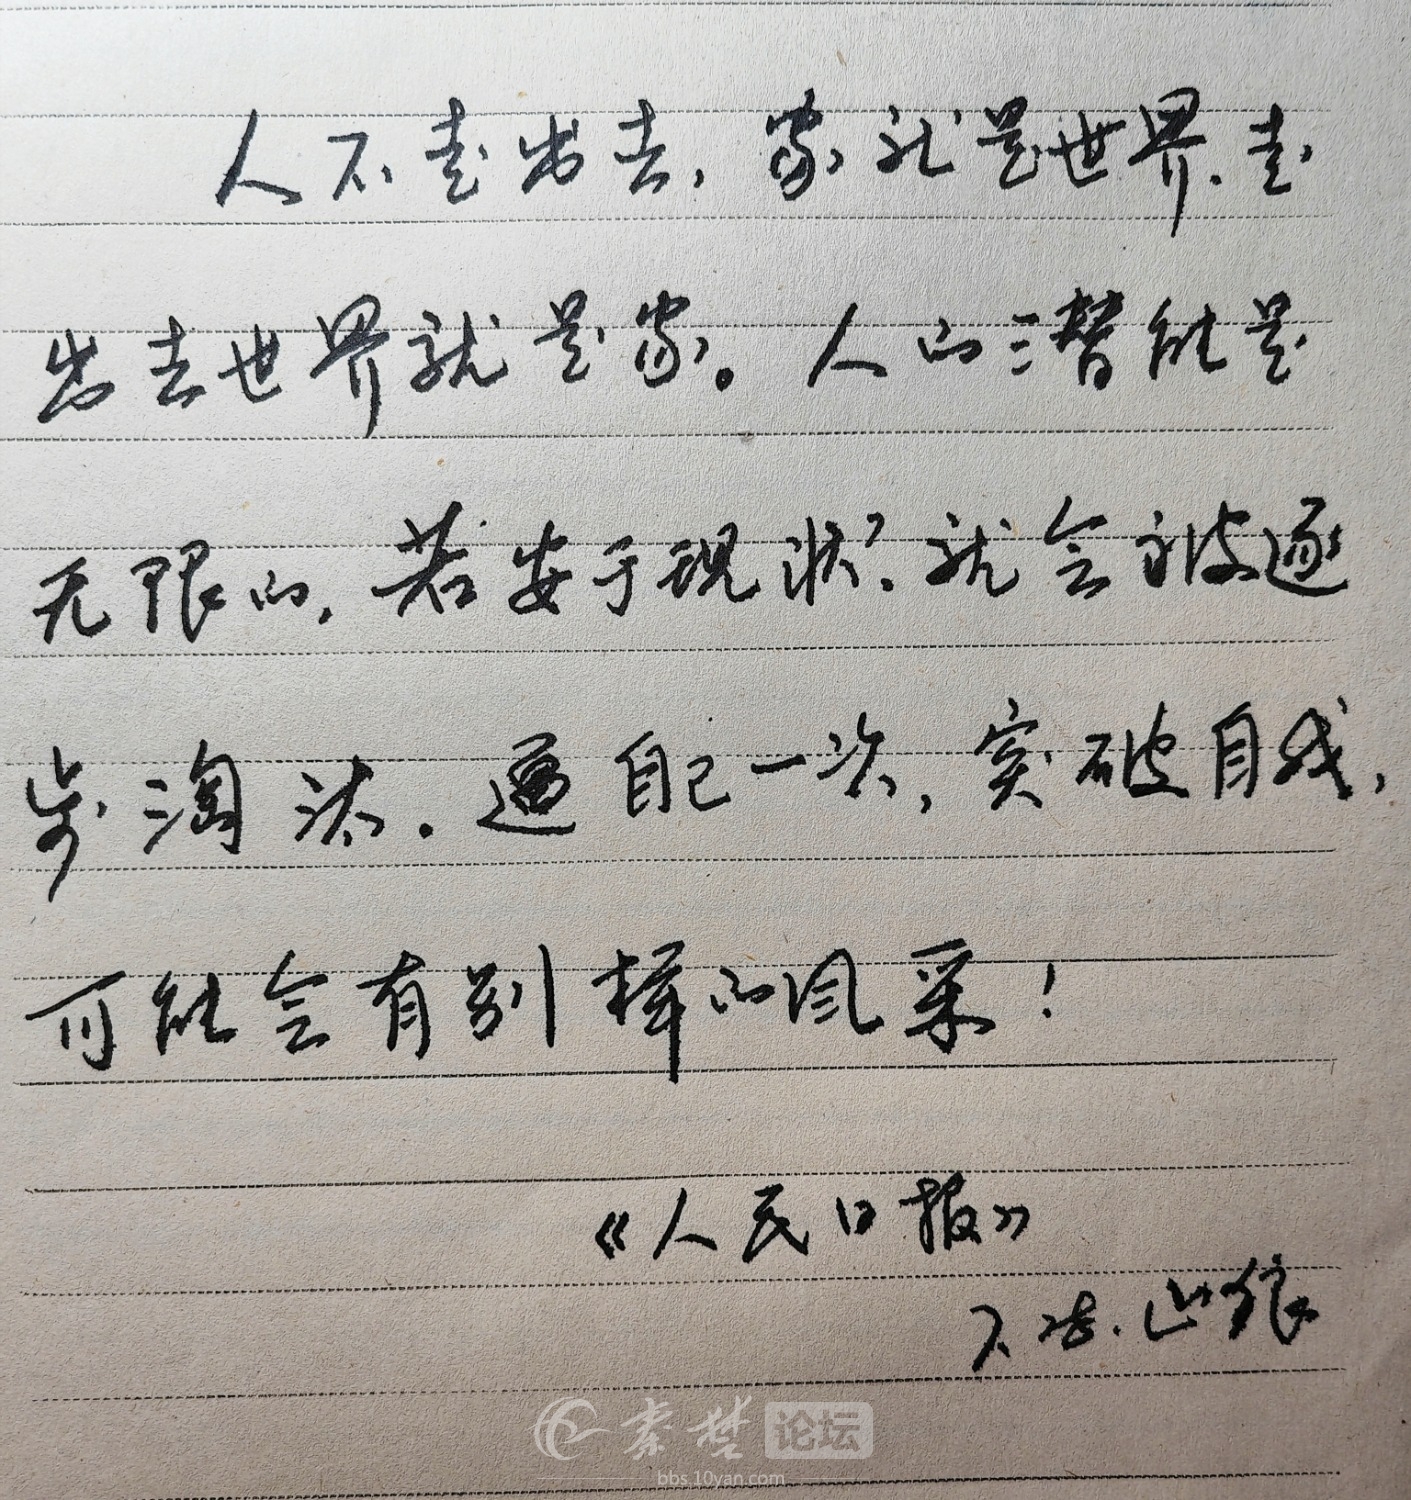 人不走出去，家就是世界，走
出去世界就是家。人的潜能是
无限的，若安于现状，就会被逐
步淘汰。逼自己一次，突破自我，
可能会有别样的风采！
《人民日报》
山狼
秦楚论坛
bbs.10yan.com